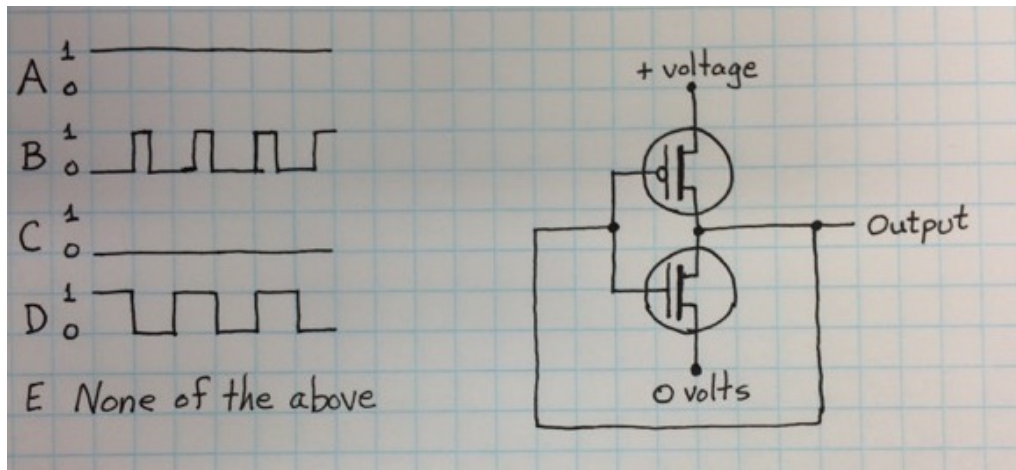 A 1
0
B 1
0
C 1
0
D 1
0
E None of the above
+ voltage
Output
0 volts